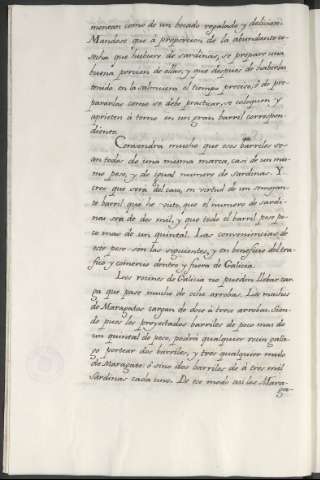 menean como de un bocado regalado y delicioso.
Mandase que á proporcion de la abundante co-
secha que hubiere de sardinas, se prepare una
buena porcion de ellas, y que despues de haberlas
tenido en la salmuera el tiempo preciso, y de pre-
pararlas como se debe practicar, se coloquen y
aprieten a torno en un gran barril correspon-
diente.
Convendra mucho que esos barriles se-
an todos de una misma marca, casi de un mis-
mo peso, y de igual numero de sardinas. Y
creo que será del caso, en virtud de un semejan-
te barril que he visto, que el numero de sardi-
nas sea de dos mil, y que todo el barril pese po-
co mas de un quintal. Las conveniencias de
este peso son las siguientes, y en beneficio del tra-
fico y comercio dentro y fuera de Galicia.
Los rocines de Galicia no pueden llebar car-
ga que pase mucho de ocho arrobas. Los machos
de Maragatos cargan de doce á trece arrobas. Sien-
do pues los proyectados barriles de poco mas de
un quintal de peso, podrá qualquier rocin galle-
go portear dos barriles, y tres qualquier macho
de Maragato: ó sino dos barriles de á tres mil
sardinas cada uno. De ese modo asi los Mara-
ga-